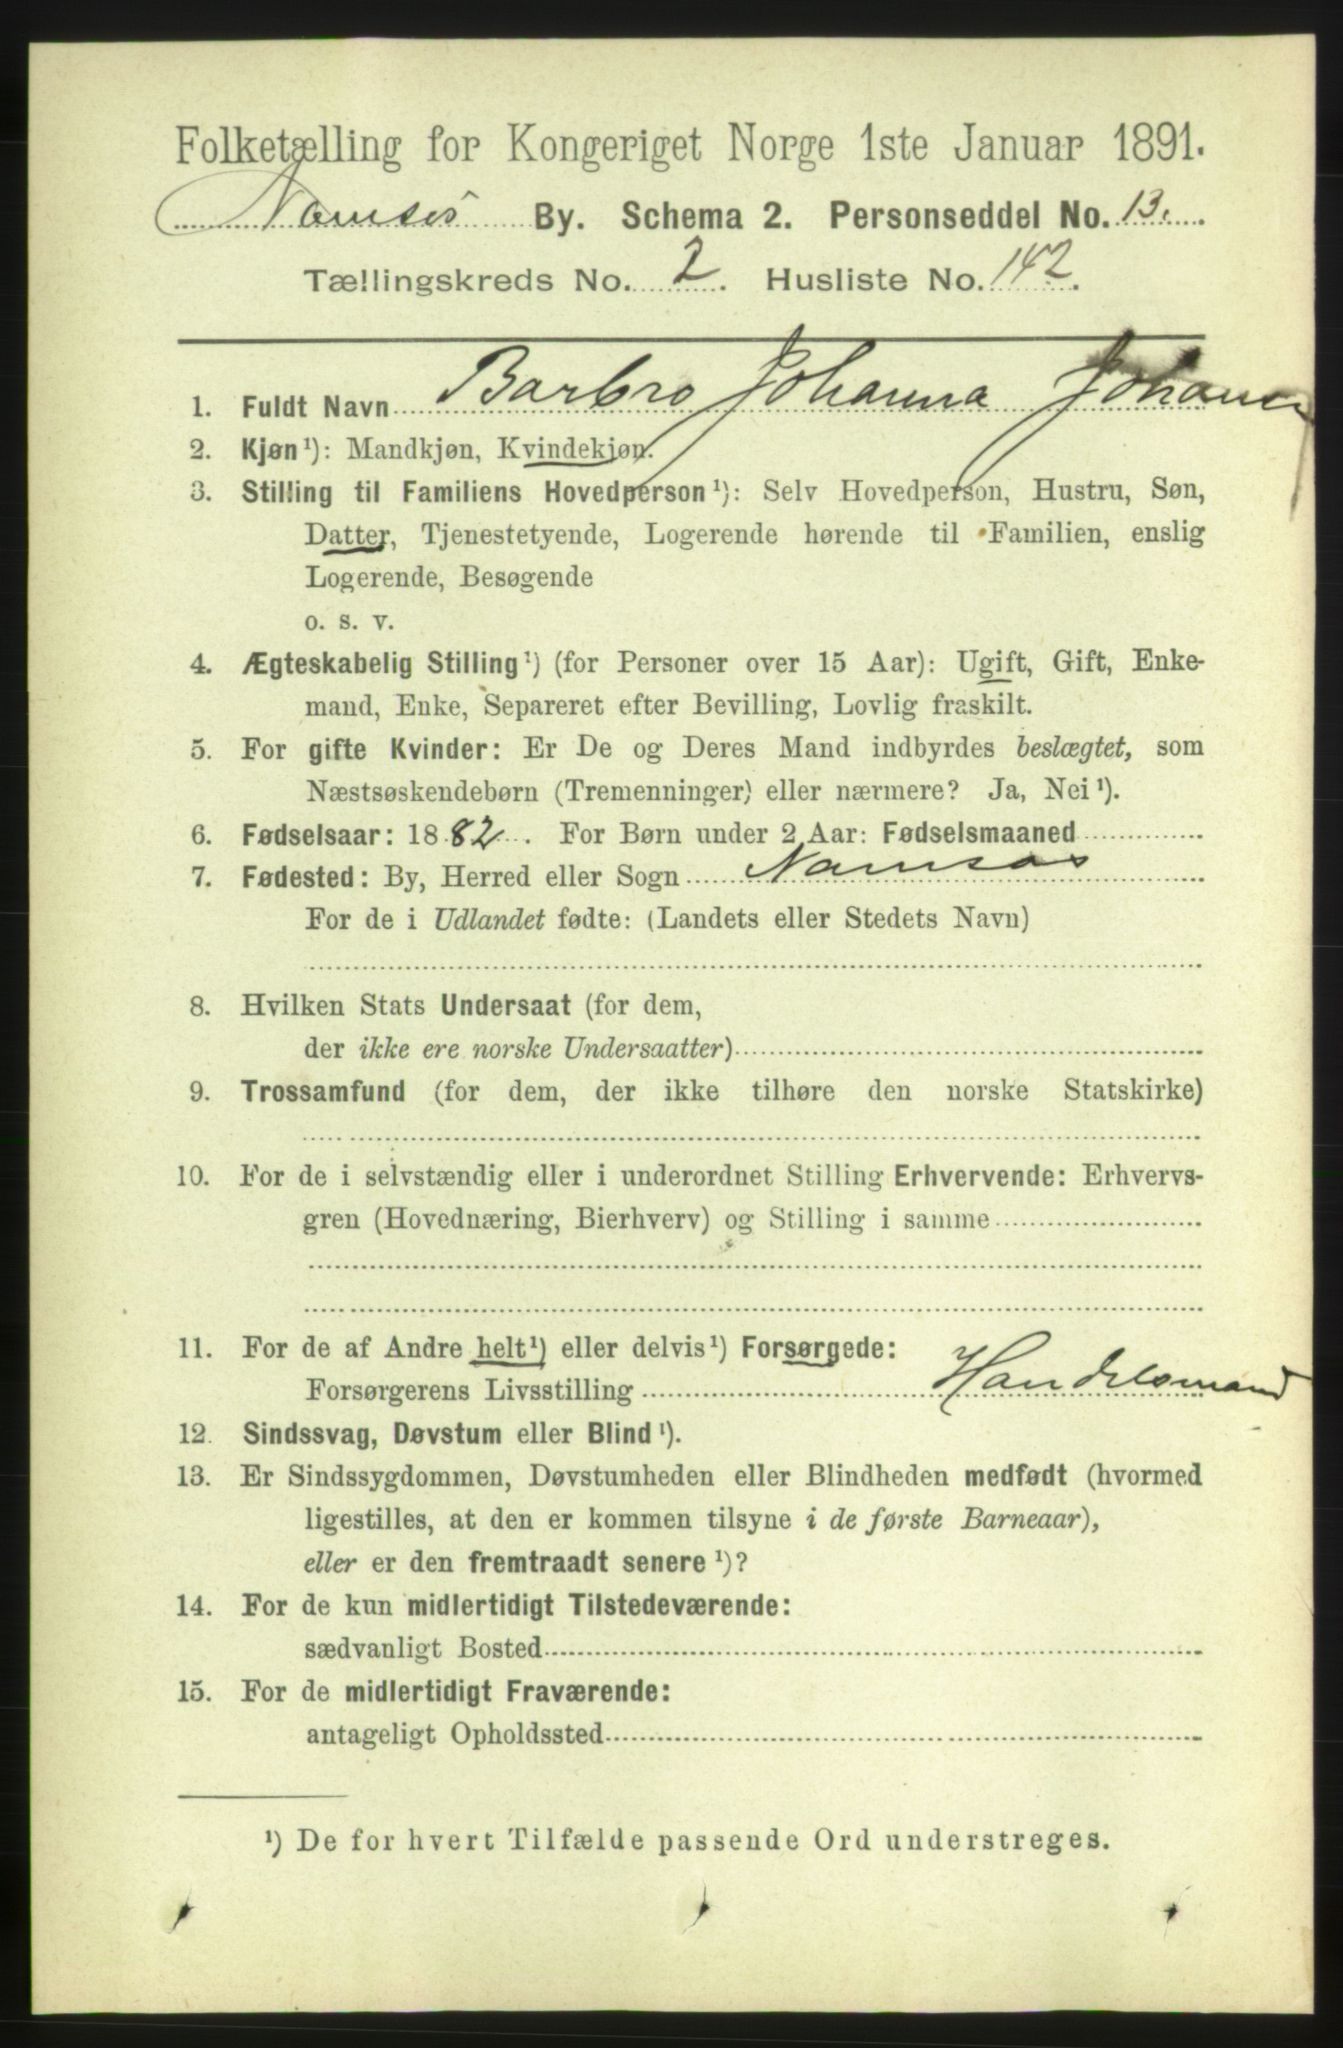 Folketælling for Kongeriget Norge 1ste Januar 1891.
Namsos By. Schema 2. Personseddel No. 13.
Tællingskreds No. 2. Husliste No. 142.
1. Fuldt Navn Barbro Johanna
2. Kjøn¹): Mandkjøn, Kvindekjøn.
3. Stilling til Familiens Hovedperson¹): Selv Hovedperson, Hustru, Søn,
Datter, Tjenestetyende, Logerende hørende til Familien, enslig
Logerende, Besøgende
o. s. v.
4. Ægteskabelig Stilling¹) (for Personer over 15 Aar): Ugift, Gift, Enke-
mand, Enke, Separeret efter Bevilling, Lovlig fraskilt.
5. For gifte Kvinder: Er De og Deres Mand indbyrdes beslægtet, som
Næstsøskendebørn (Tremenninger) eller nærmere? Ja, Nei¹).
6. Fødselsaar: 1882. For Børn under 2 Aar: Fødselsmaaned
7. Fødested: By, Herred eller Sogn Namsos
For de i Udlandet fødte: (Landets eller Stedets Navn)
8. Hvilken Stats Undersaat (for dem,
der ikke ere norske Undersaatter)
9. Trossamfund (for dem, der ikke tilhøre den norske Statskirke)
10. For de i selvstændig eller i underordnet Stilling Erhvervende: Erhvervs-
gren (Hovednæring, Bierhverv) og Stilling i samme
11. For de af Andre helt¹) eller delvis¹) Forsørgede:
Forsørgerens Livsstilling Handelsmand
12. Sindssvag, Døvstum eller Blind¹).
13. Er Sindssygdommen, Døvstumheden eller Blindheden medfødt (hvormed
ligestilles, at den er kommen tilsyne i de første Barneaar),
eller er den fremtraadt senere¹)?
14. For de kun midlertidigt Tilstedeværende:
sædvanligt Bosted
15. For de midlertidigt Fraværende:
antageligt Opholdssted
¹) De for hvert Tilfælde passende Ord understreges.